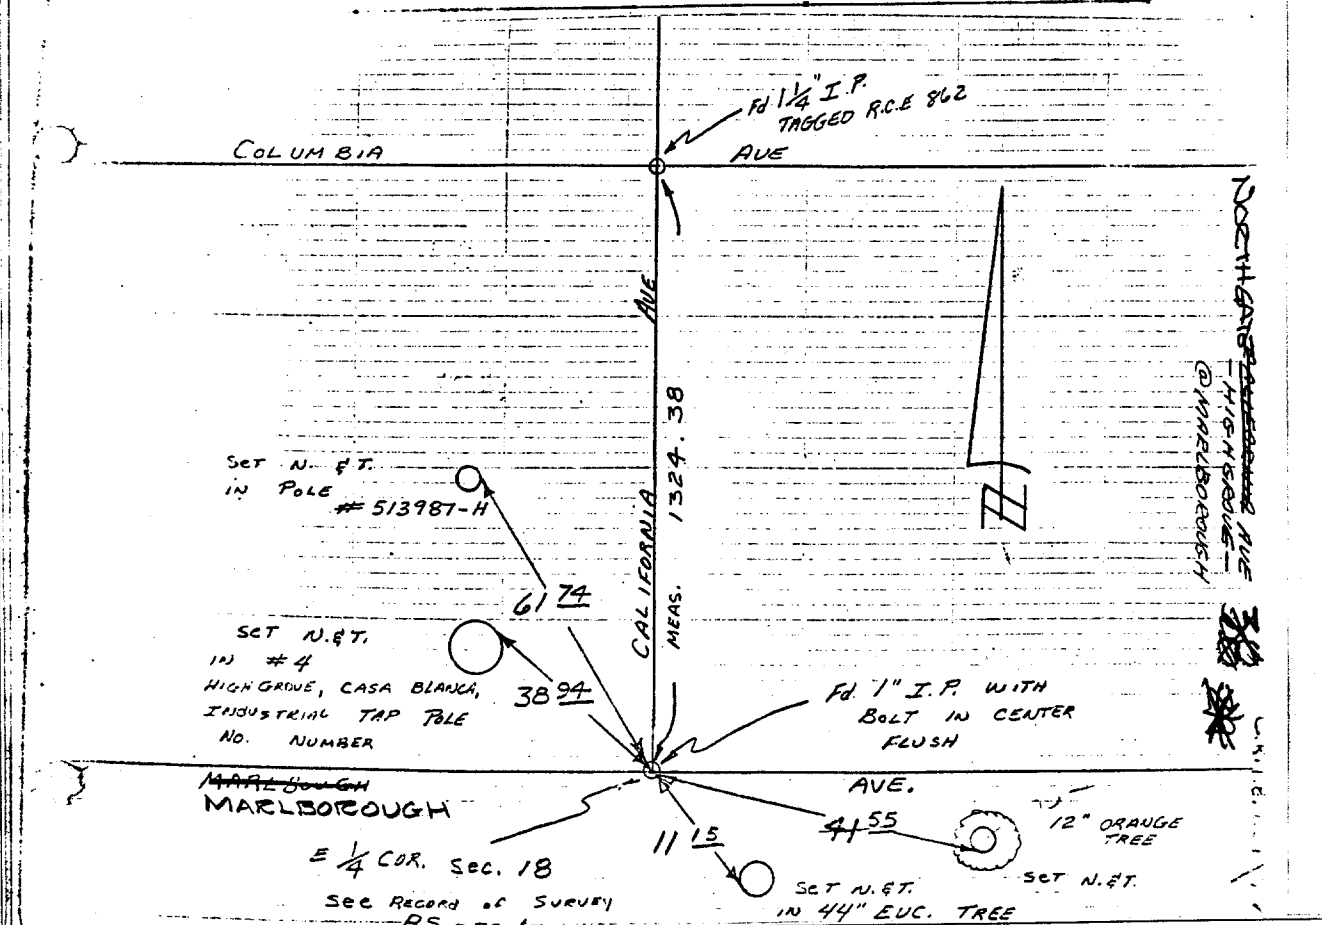 Fd 1 1/4" I.P.
TAGGED R.C.E 862
COLUMBIA AVE
CALIFORNIA AVE
MEAS. 1324.38
N
SET N. & T.
IN POLE
# 513987-H
61 74
SET N.&T.
IN #4
HIGHGROVE, CASA BLANCA,
INDUSTRIAL TAP POLE
NO. NUMBER
38 94
Fd. 1" I.P. WITH
BOLT IN CENTER
FLUSH
MARLBOUGH
MARLBOROUGH AVE.
E 1/4 COR. SEC. 18
See RECORD of SURVEY
11 15
41 55
12" ORANGE
TREE
SET N.&T.
SET N.&T.
IN 44" EUC. TREE
AVE
-HIGHGROVE-
@MARLBOROUGH